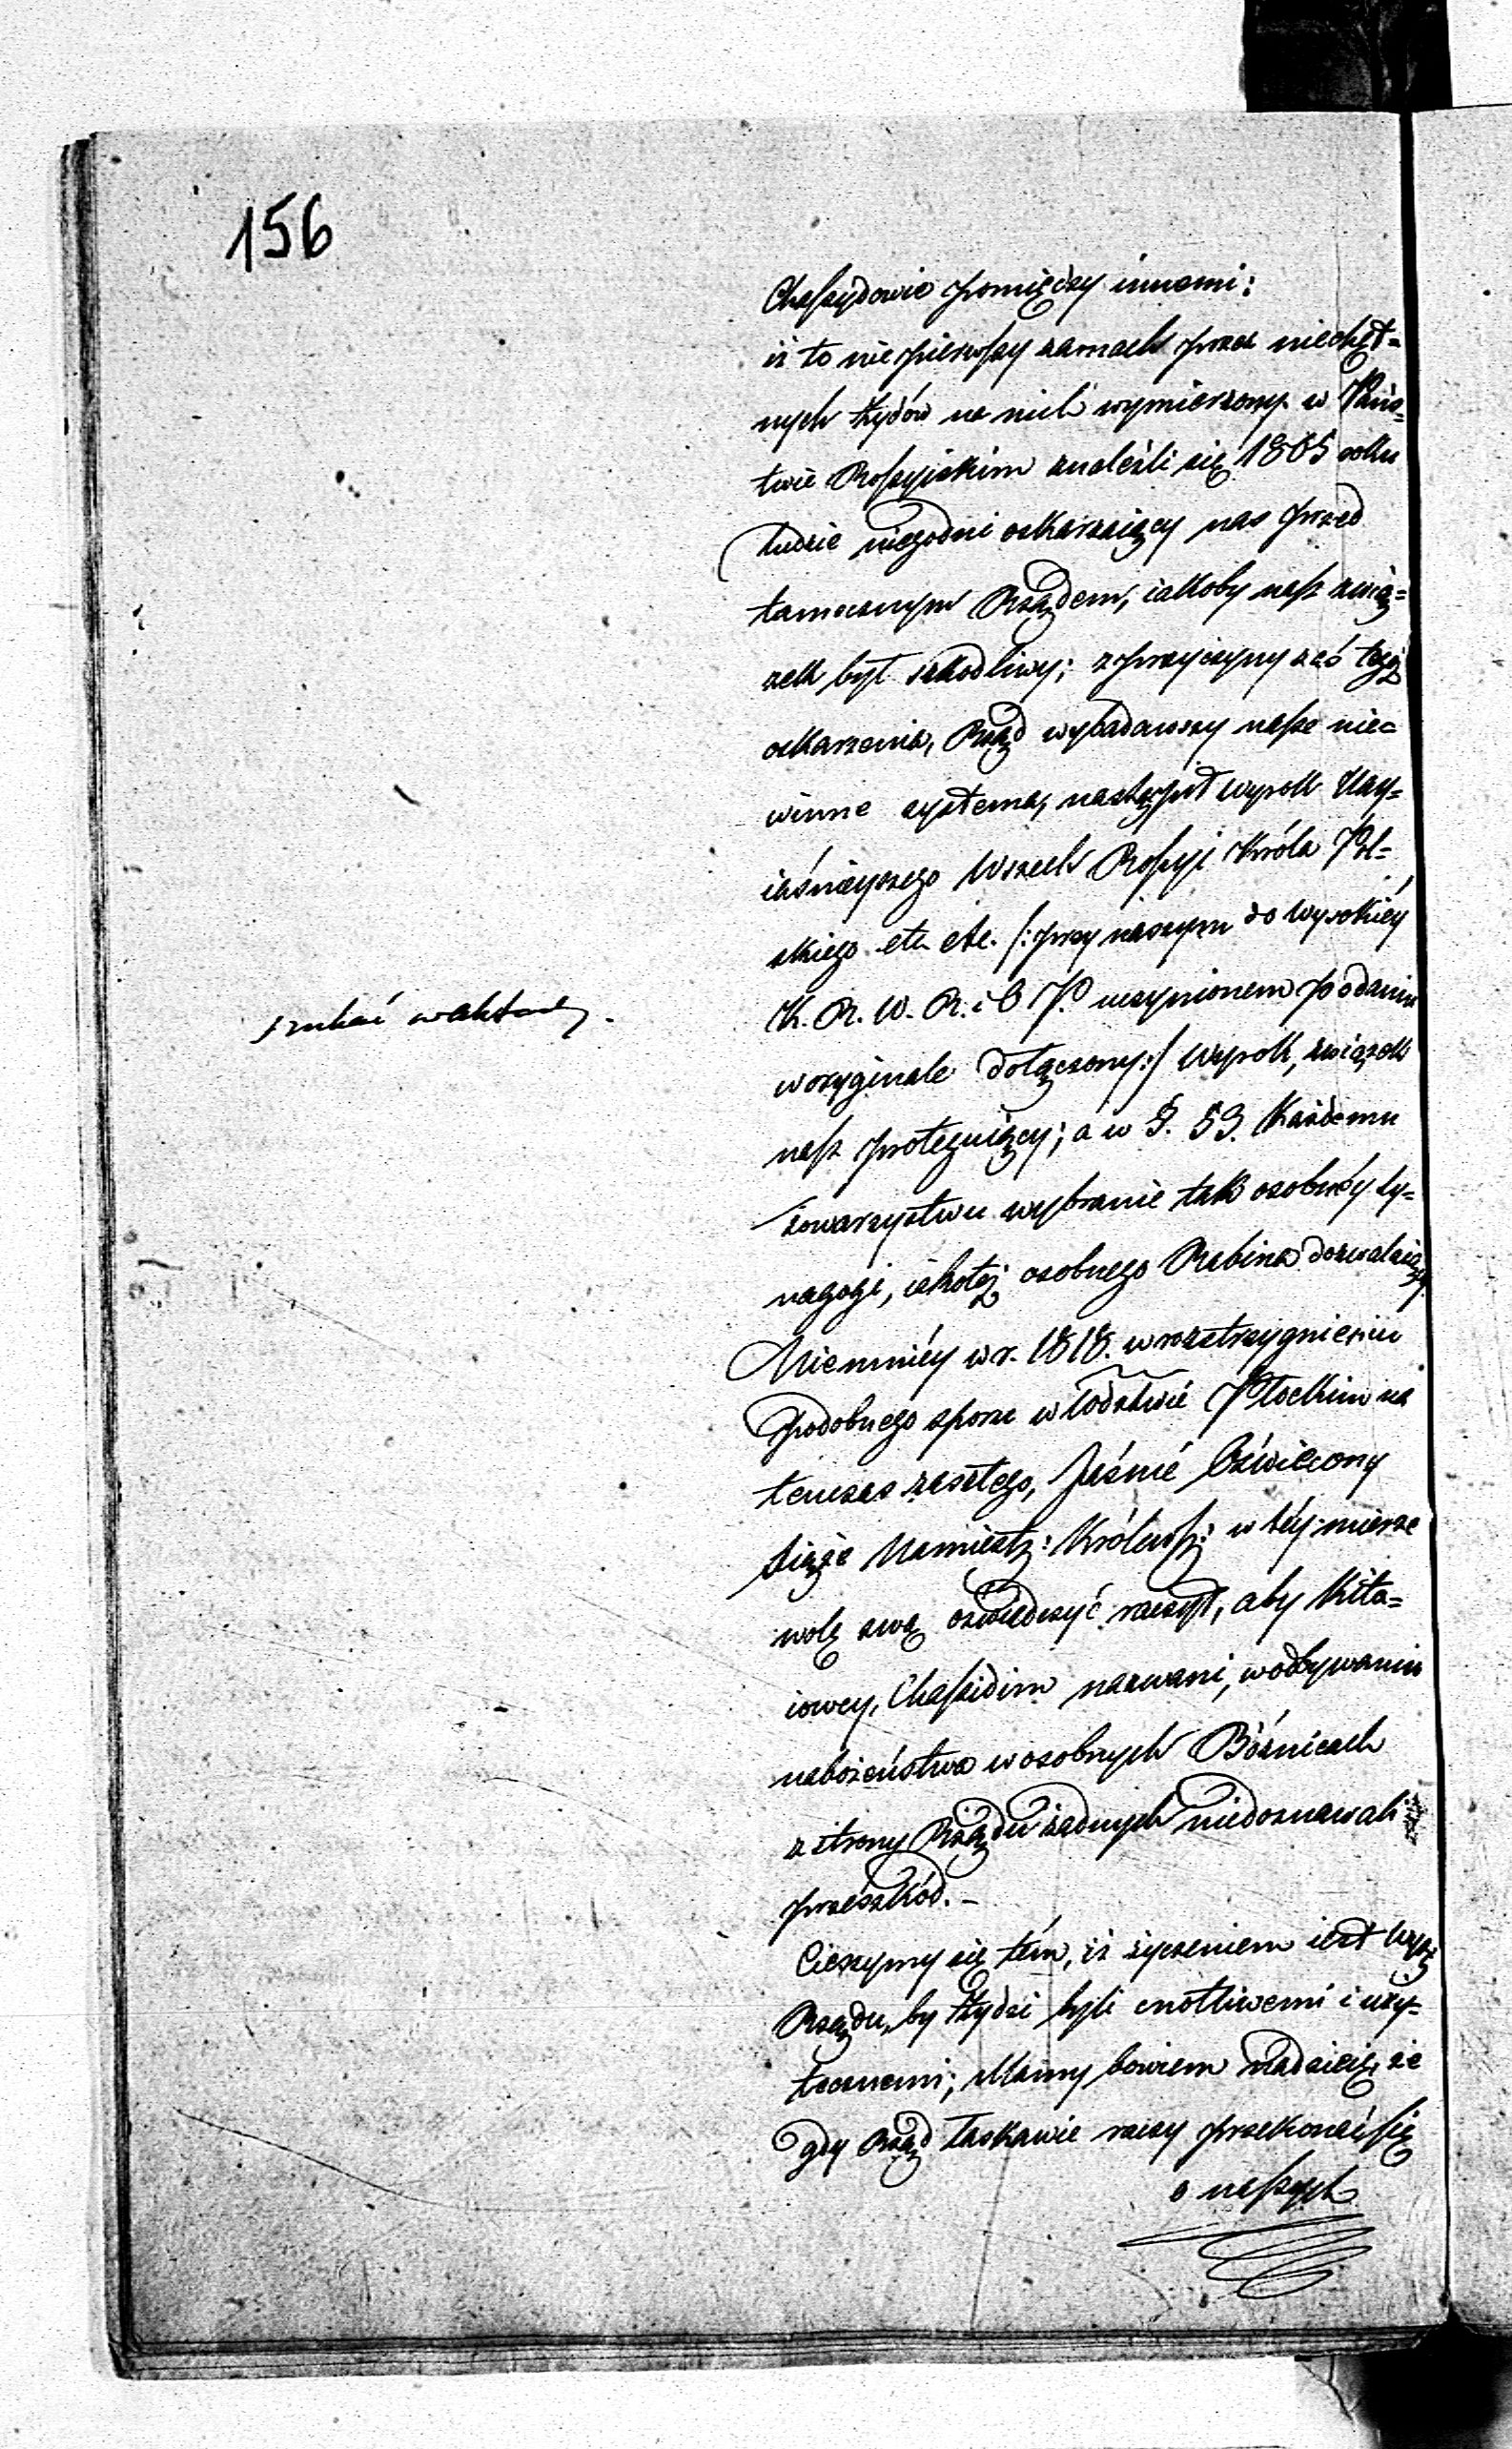 156
Chaſsydowie pomiędzy innemi:
iż to nie pierwſzy zamach przez niechęt=
nych Żydów na nich wymierzony w Pańs=
twie Roſsyiskim znaleźli się 1805 roku
ludzie niegodni oskarzaiący nas przed
tamecznym Rządem, iakoby naſz zwią=
zek był szkodliwy; z przyczyny zaś tegoż
oskarzenia, Rząd wybadawszy naſze nie=
winne systema, nastąpił wyrok Nay=
iaśnieyszego Wszech Roſsyi Króla Pol=
skiego etc etc. /: przy naszym do Wysokiéy
K. R. W. R. i O P. uczynionem podaniu
szukać w aktach.
w oryginale dołączony :/ Wyrok, związek
naſz proteguiący; a w §. 53. Każdemu
towarzystwu wybranie tak osobnéy Sy=
nagogi, iakoteż osobnego Rabina dozwalaiący.
Niemniéy w r. 1818. w rozstrzygnieniu
podobnego sporu w Wdztwie Płockim na
tenczas zaszłego, Jaśnie Oświecony
Xiąże Namiestn: Królewſk: w téy mierze
wolę swą oświadczyć raczył, aby Kita=
iowcy, Chaſsidim nazwani, w odbywaniu
nabożeństwa w osobnych Bóżnicach
z strony Rządu żadnych niedoznawali
przeszkód. –
Cieszymy się tém, iż życzeniem iest Wyż:
Rządu, by Żydzi byli cnotliwemi i uży=
tecznemi; Mamy bowiem nadzieię, że
gdy Rząd łaskawie raczy przekonać ſię
o naſzych